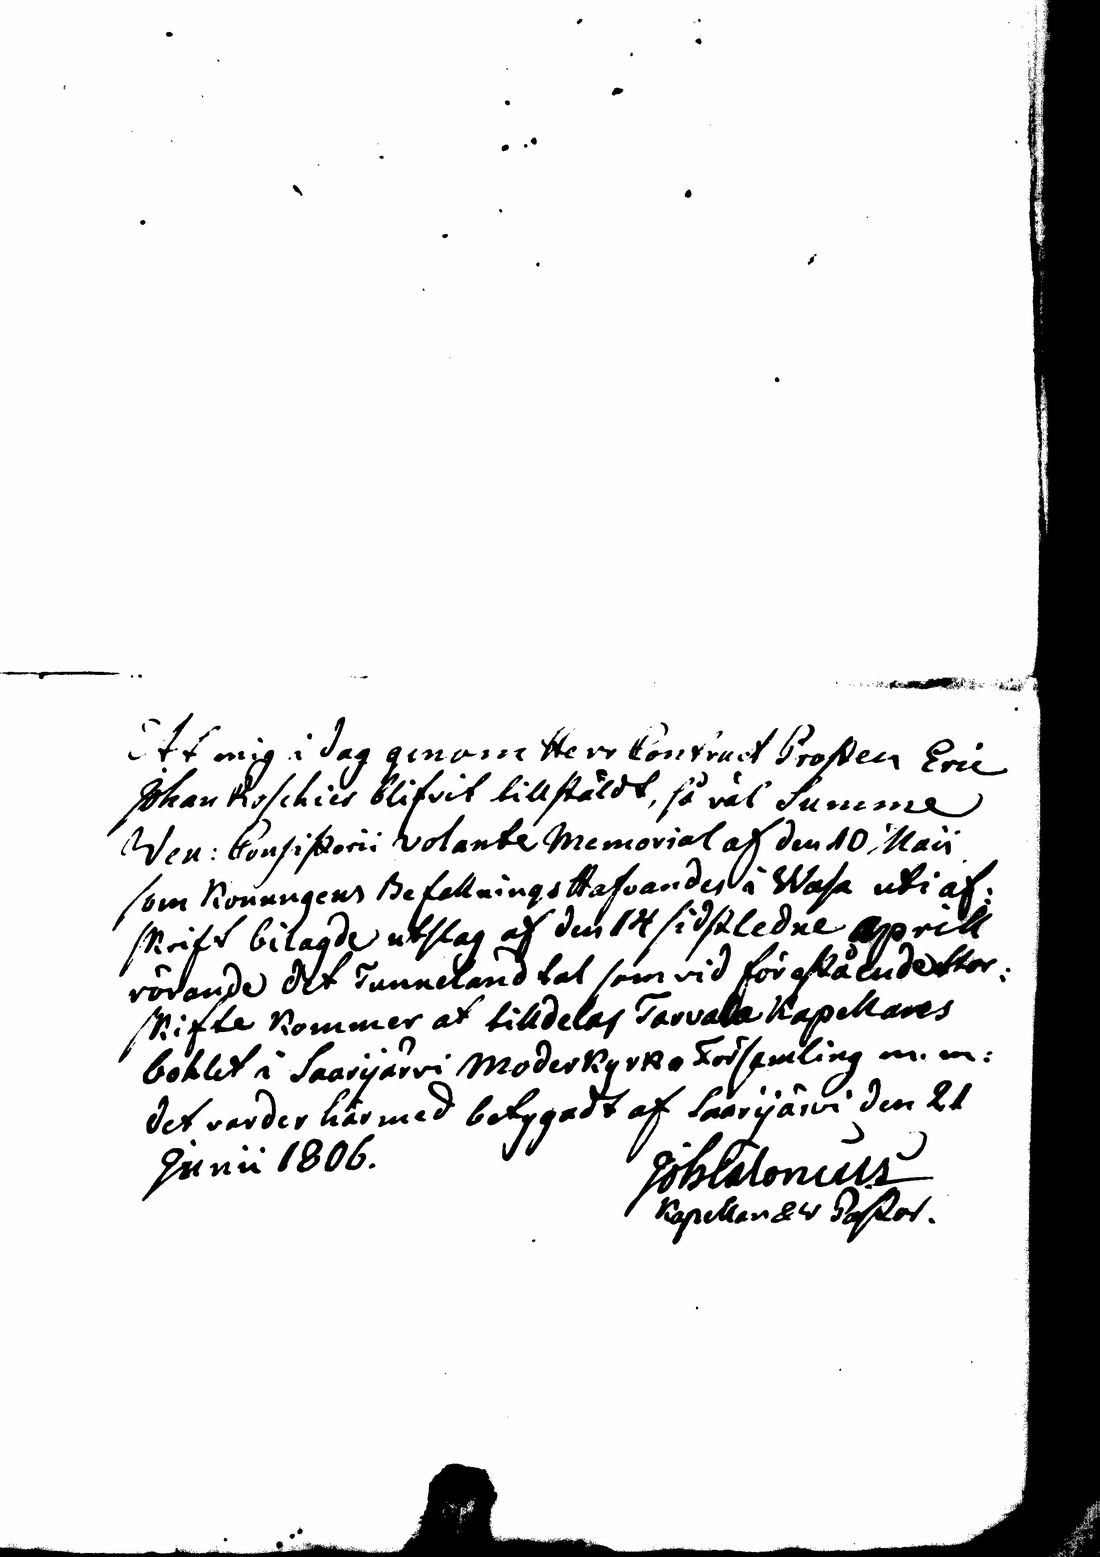 At mig i dag genom Herr Contract Prosten Eric
Johan Roschier blifvit tillstäldt, så väl Summe
Ven: Consistorii volante Memorial af den 10 Maii
som Konungens Befallnings Hafvandes i Wasa uti af:
skrift bilagde utslag af den 14 sidstledne aprill
rörande det Tunneland tal som vid förestående stor:
skifte kommer at tilldelas Tarvala Kapellares
bohlet i Saarijärvi Moderkyrko Församling m. m:
det varder härmed betygadt af Saarijärvi den 21
Junii 1806.
Joh Calonius
Kapellan & v Pastor.